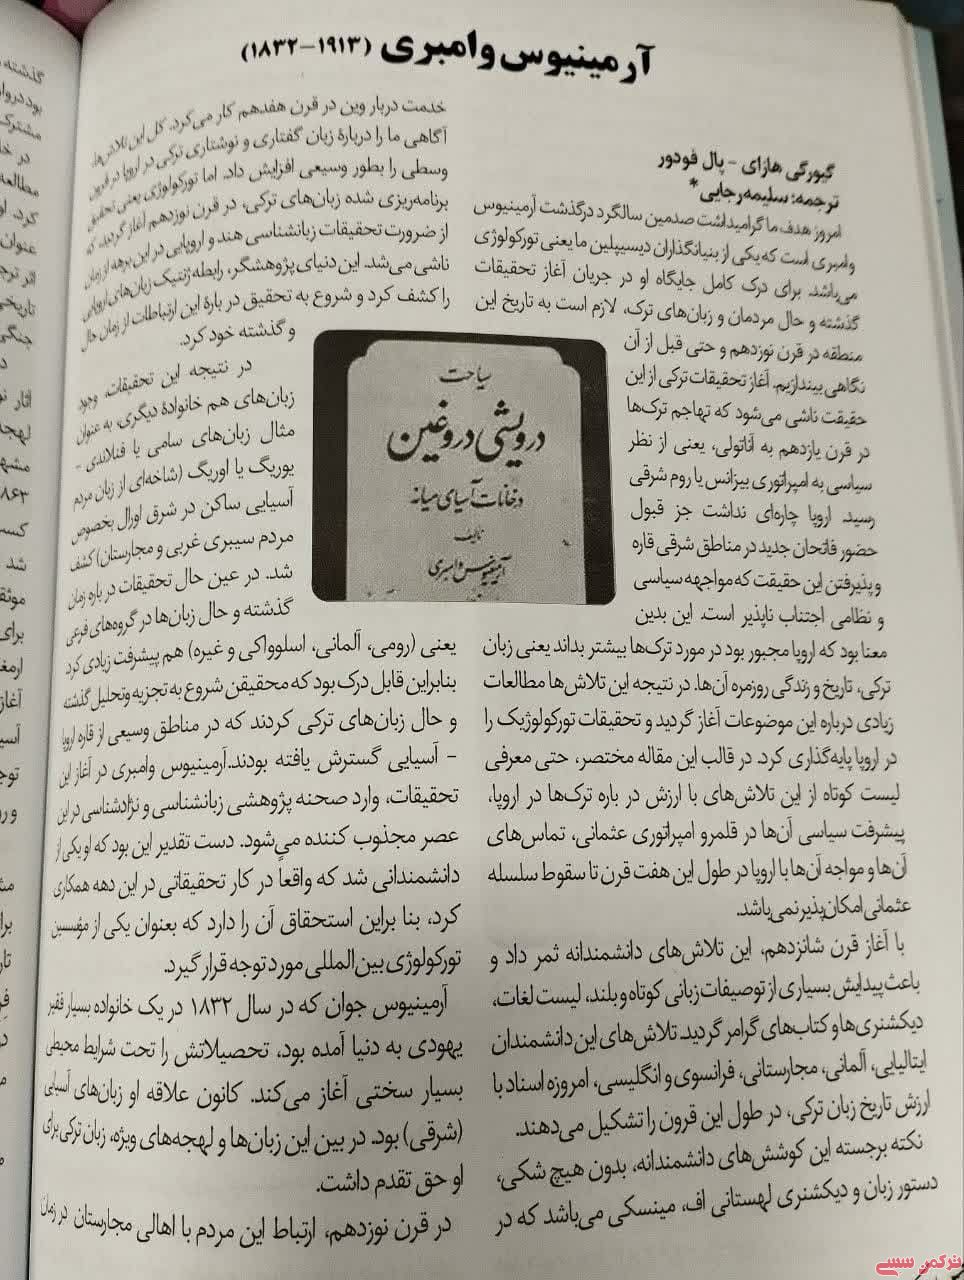 آرمینیوس وامبری (۱۹۱۳-۱۸۳۲)
گیورگی هازای - پال فودور
ترجمه: سلیمه رجایی*
امروز هدف ما گرامیداشت صدمین سالگرد درگذشت آرمینیوس
وامبری است که یکی از بنیانگذاران دیسیپلین ما یعنی تورکولوژی
می‌باشد. برای درک کامل جایگاه او در جریان آغاز تحقیقات
گذشته و حال مردمان و زبان‌های ترک، لازم است به تاریخ این
منطقه در قرن نوزدهم و حتی قبل از آن
نگاهی بیندازیم. آغاز تحقیقات ترکی از این
حقیقت ناشی می‌شود که تهاجم ترک‌ها
در قرن یازدهم به آناتولی، یعنی از نظر
سیاسی به امپراتوری بیزانس یا روم شرقی
رسید. اروپا چاره‌ای نداشت جز قبول
حضور فاتحان جدید در مناطق شرقی قاره
و پذیرفتن این حقیقت که مواجهه سیاسی
و نظامی اجتناب ناپذیر است. این بدین
معنا بود که اروپا مجبور بود در مورد ترک‌ها بیشتر بداند یعنی زبان
ترکی، تاریخ و زندگی روزمره آن‌ها. در نتیجه این تلاش‌ها مطالعات
زیادی درباره این موضوعات آغاز گردید و تحقیقات تورکولوژیک را
در اروپا پایه‌گذاری کرد. در قالب این مقاله مختصر، حتی معرفی
لیست کوتاه از این تلاش‌های با ارزش در باره ترک‌ها در اروپا،
پیشرفت سیاسی آن‌ها در قلمرو امپراتوری عثمانی، تماس‌های
آن‌ها و مواجه آن‌ها با اروپا در طول این هفت قرن تا سقوط سلسله
عثمانی امکان‌پذیر نمی‌باشد.
با آغاز قرن شانزدهم، این تلاش‌های دانشمندانه ثمر داد و
باعث پیدایش بسیاری از توصیفات زبانی کوتاه و بلند، لیست لغات،
دیکشنری‌ها و کتاب‌های گرامر گردید. تلاش‌های این دانشمندان
ایتالیایی، آلمانی، مجارستانی، فرانسوی و انگلیسی، امروزه اسناد با
ارزش تاریخ زبان ترکی، در طول این قرون را تشکیل می‌دهند.
نکته برجسته این کوشش‌های دانشمندانه، بدون هیچ شکی،
دستور زبان و دیکشنری لهستانی اف، مینسکی می‌باشد که در
خدمت دربار وین در قرن هفدهم کار می‌کرد. کل این تلاش‌ها،
آگاهی ما را دربارهٔ زبان گفتاری و نوشتاری ترکی در اروپا در قرون
وسطی را بطور وسیعی افزایش داد. اما تورکولوژی یعنی تحقیق
برنامه‌ریزی شده زبان‌های ترکی، در قرن نوزدهم آغاز گردید، که
از ضرورت تحقیقات زبانشناسی هند و اروپایی در این برهه از زمان
ناشی می‌شد. این دنیای پژوهشگر، رابطه ژنتیک زبان‌های اروپایی
را کشف کرد و شروع به تحقیق در بارهٔ این ارتباطات از زمان حال
و گذشته خود کرد.
در نتیجه این تحقیقات، وجود
زبان‌های هم خانوادهٔ دیگری، به عنوان
مثال زبان‌های سامی یا فنلاندی -
یوریگ یا اوریگ (شاخه‌ای از زبان مردم
آسیایی ساکن در شرق اورال بخصوص
مردم سیبری غربی و مجارستان) کشف
شد. در عین حال تحقیقات در باره زمان
گذشته و حال زبان‌ها در گروه‌های فرعی
یعنی (رومی، آلمانی، اسلوواکی و غیره) هم پیشرفت زیادی کرد
بنابراین قابل درک بود که محقیقن شروع به تجزیه وتحلیل گذشته
و حال زبان‌های ترکی کردند که در مناطق وسیعی از قاره اروپا
- آسیایی گسترش یافته بودند.آرمینیوس وامبری در آغاز این
تحقیقات، وارد صحنه پژوهشی زبانشناسی و نژادشناسی در این
عصر مجذوب کننده می‌شود. دست تقدیر این بود که او یکی از
دانشمندانی شد که واقعا در کار تحقیقاتی در این دهه همکاری
کرد، بنا براین استحقاق آن را دارد که بعنوان یکی از مؤسسین
تورکولوژی بین‌المللی مورد توجه قرار گیرد.
آرمینیوس جوان که در سال ۱۸۳۲ در یک خانواده بسیار فقیر
یهودی به دنیا آمده بود، تحصیلاتش را تحت شرایط محیطی
بسیار سختی آغاز می‌کند. کانون علاقه او زبان‌های آسیایی
(شرقی) بود. در بین این زبان‌ها و لهجه‌های ویژه، زبان ترکی برای
او حق تقدم داشت.
در قرن نوزدهم، ارتباط این مردم با اهالی مجارستان در زمان
سیاحت
درویشی دروغین
در خانات آسیای میانه
تالیف
آرمینیوس وامبری
ترکمن سسی